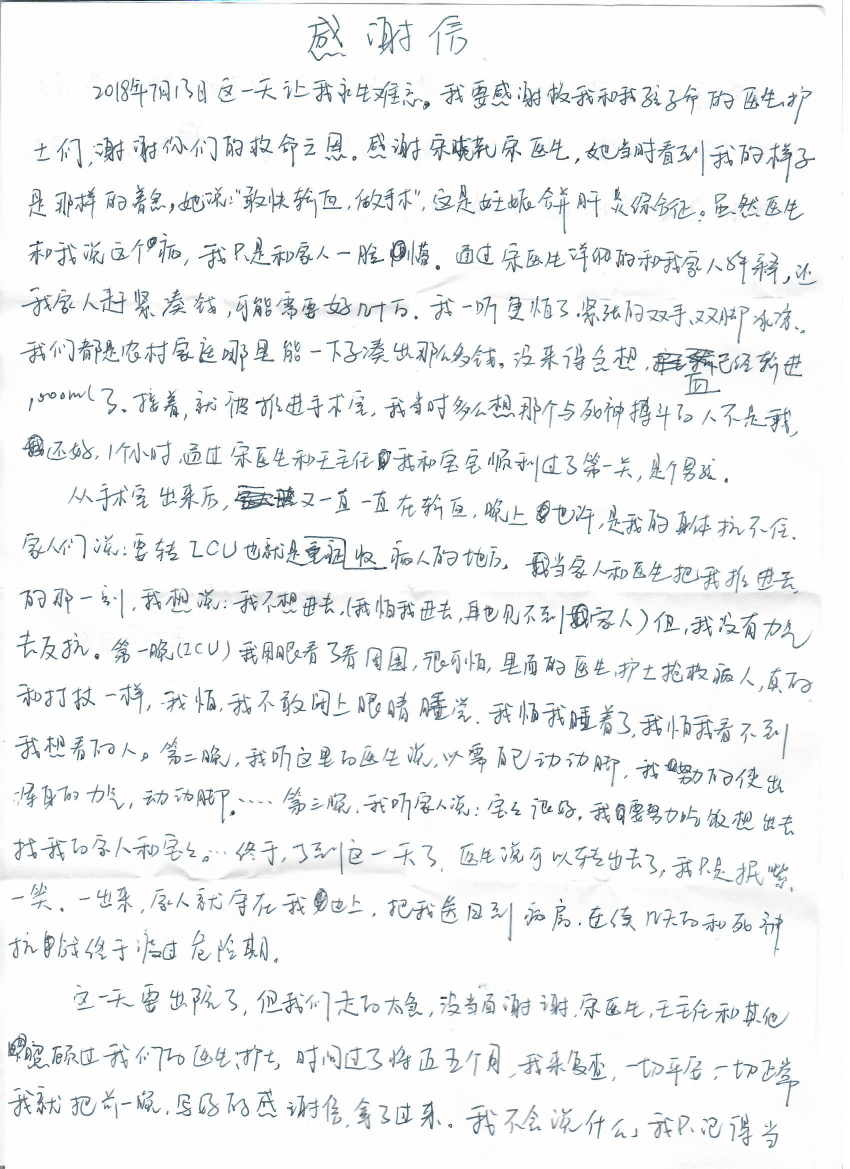 感谢信
2018年7月13日这一天让我永生难忘。我要感谢救我和我孩子命的医生、护
士们，谢谢你们的救命之恩。感谢宋晓乾宋医生，她当时看到我的样子
是那样的着急，她说：“敢快输血，做手术”，这是妊娠合并肝炎综合征。虽然医生
和我说这个病，我只是和家人一脸懵。通过宋医生详细的和我家人解释，还
我家人赶紧凑钱，可能需要好几十万。我一听更怕了，紧张的双手、双脚冰凉。
我们都是农村家庭哪里能一下子凑出那么多钱。没来得急想，已经输进血
1,500ml了。接着，就被推进手术室，我当时多么想那个与死神搏斗的人不是我，
还好，1个小时，通过宋医生和王主任我和宝宝顺利过了第一关，是个男孩。
从手术室出来后，又一直一直在输血，晚上也许，是我的身体抗不住，
家人们说：要转ICU也就是重症收病人的地方。当家人和医生把我推进去
的那一刻，我想说：我不想进去，(我怕我进去，再也见不到家人)但，我没有力气
去反抗。第一晚(ICU)我用眼看了看周围，很可怕，里面的医生、护士抢救病人，真的
和打仗一样，我怕，我不敢闭上眼睛睡觉，我怕我睡着了，我怕我看不到
我想看的人。第二晚，我听这里的医生说，以需自己动动脚，我努力的使出
浑身的力气，动动脚。…… 第三晚，我听家人说：宝宝很好。我要努力吃饭想出去
找我的家人和宝宝。… 终于，了到这一天了，医生说可以转出去了，我只是抿嘴
一笑。一出来，家人就守在我边上，把我送回到病房。连续几天的和死神
抗战终于渡过危险期。
这一天要出院了，但我们走的太急，没当面谢谢，宋医生，王主任和其他
照顾过我们的医生、护士，时间过了将近五个月，我来复查，一切平安，一切正常
我就把前一晚，写好的感谢信，拿了过来。我不会说什么，我只记得当